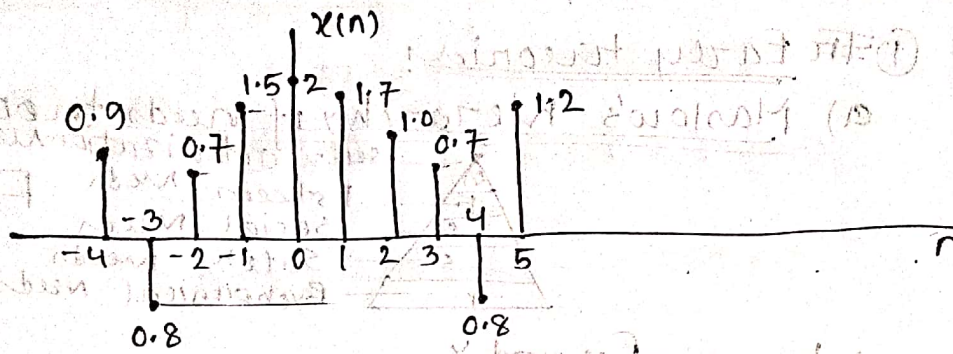 x(n)
0.9
0.7
1.5
2
1.7
1.0
0.7
1.2
-4
-3
-2
-1
0
1
2
3
4
5
n
0.8
0.8